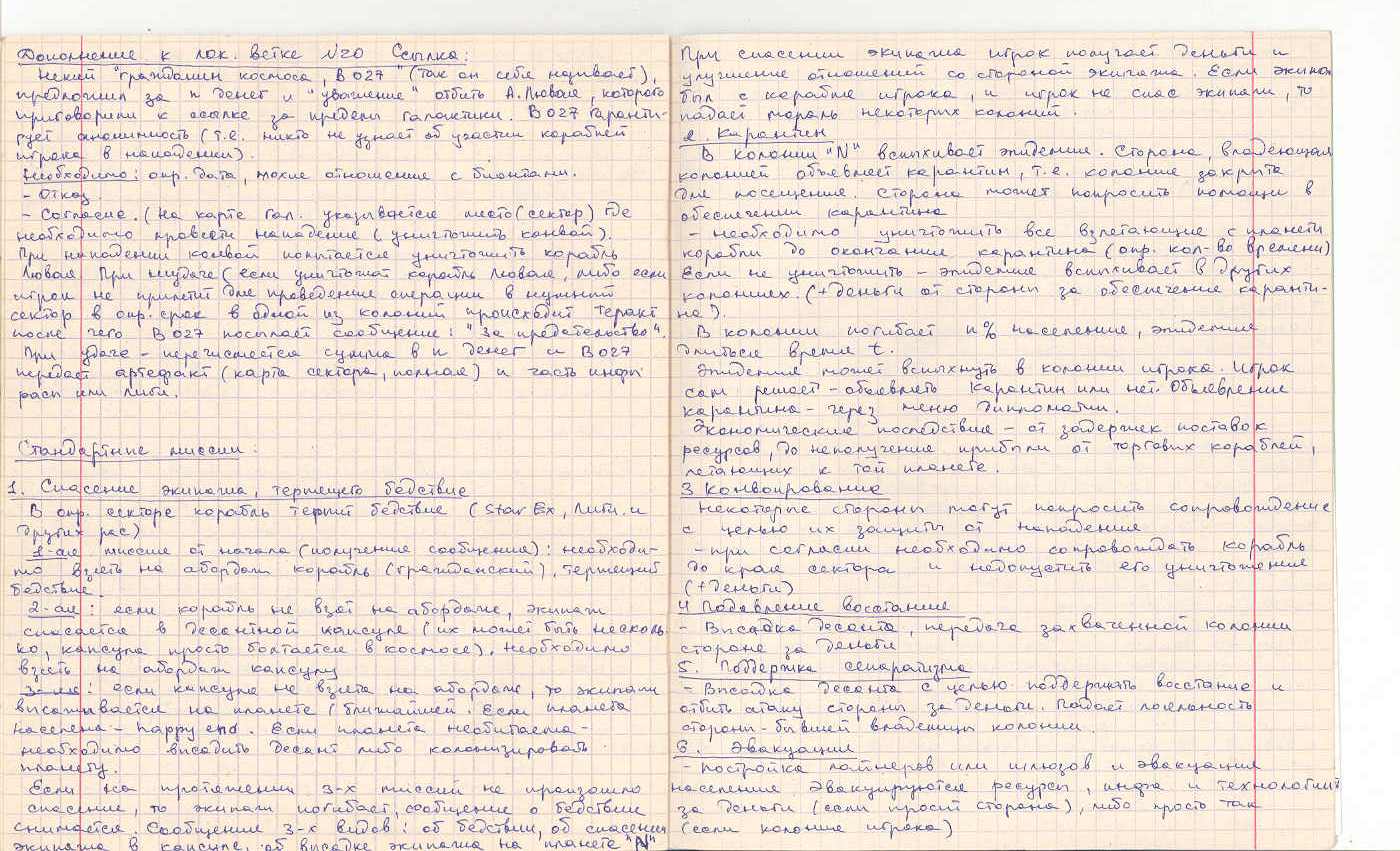 Дополнение к лок. ветке №20 Ссылка:
Некий "гражданин космоса, В027" (так он себя называет),
предложил за n денег и "уважение" отбить А.Лювала, которого
приговорили к ссылке за пределы галактики. В027 гаранти-
рует анонимность (т.е. никто не узнает об участии кораблей
игрока в нападении).
Необходимо: опр. дата, плохие отношение с бионтами.
- Отказ.
- Согласие. (На карте гал. указывается место(сектор) где
необходимо провести нападение (уничтожить конвой).
При нападении конвой попытается уничтожить корабль
Лювала. При неудаче (если уничтожат корабль Лювала, либо если
игрок не прилетит для проведения операции в нужный
сектор в опр. срок в одной из колоний происходит теракт
после чего В027 посылает сообщение: "За предательство".
При удаче - перечисляется сумма в n денег и В027
передаёт артефакт (карта сектора, полная) и часть инфы
расы или Лиги.
Стандартные миссии:
1. Спасение экипажа, терпящего бедствие
В опр. секторе корабль терпит бедствие (Star Ex, Лиги и
других рас)
1-ая миссия от начала (получения сообщения): необходи-
мо взять на абордаж корабль (гражданский), терпящий
бедствие.
2-ая: если корабль не взят на абордаж, экипаж
спасается в десантной капсуле (их может быть несколь-
ко, капсула просто болтается в космосе), необходимо
взять на абордаж капсулу
3-ая: если капсула не взята на абордаж, то экипаж
высаживается на планете (ближайшей. Если планета
населена - happy end. Если планета необитаема -
необходимо высадить десант либо колонизировать
планету.
Если на протяжении 3-х миссий не произошло
спасение, то экипаж погибает, сообщение о бедствии
снимается. Сообщение 3-х видов: об бедствии, об спасении
экипажа в капсуле, об высадке экипажа на планете "N"
При спасении экипажа игрок получает деньги и
улучшение отношений со стороной экипажа. Если экипаж
был с корабля игрока, и игрок не спас экипаж, то
падает мораль некоторых колоний.
2. Карантин
В колонии "N" вспыхивает эпидемия. Сторона, владеющая
колонией объявляет карантин, т.е. колония закрыта
для посещения. Сторона может попросить помощи в
обеспечении карантина
- необходимо уничтожить все взлетающие с планеты
корабли до окончания карантина (опр. кол-во времени)
Если не уничтожить - эпидемия вспыхивает в других
колониях. (+деньги от стороны за обеспечение каранти-
на).
В колонии погибает n% население, эпидемия
длиться время t.
Эпидемия может вспыхнуть в колонии игрока. Игрок
сам решает - объявлять карантин или нет. Объявление
карантина - через меню дипломатии.
Экономические последствия - от задержек поставок
ресурсов, до неполучения прибыли от торговых кораблей,
летающих к той планете.
3 Конвоирование
Некоторые стороны могут попросить сопровождение
с целью их защиты от нападения
- при согласии необходимо сопровождать корабль
до края сектора и недопустить его уничтожение
(+деньги)
4 Подавление восстания
- Высадка десанта, передача захваченной колонии
стороне за деньги
5. Поддержка сепаратизма
- Высадка десанта с целью поддержать восстание и
отбить атаку стороны за деньги. Падает лояльность
стороны - бывшей владелицы колонии.
6. Эвакуация
- постройка лайнеров или шлюзов и эвакуация
населения. Эвакуируются ресурсы, инфа и технологии
за деньги (если просит сторона), либо просто так
(если колония игрока)